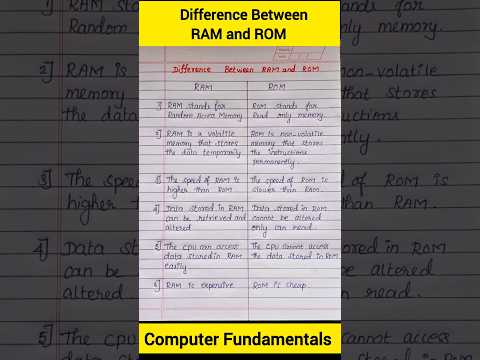 Difference Between
RAM and ROM
Difference Between RAM and ROM
RAM
ROM
1] RAM stands for
Random Access Memory
Rom stands for
Read only memory.
2] RAM is a volatile
memory that stores
the data temporarily
ROM is non-volatile
memory that stores
the instructions
permanently.
3] The speed of RAM is
higher than ROM.
The speed of ROM is
slower than RAM.
4] Data stored in RAM
can be retrieved and
altered
Data stored in ROM
cannot be altered
only can read.
5] The CPU can access
data stored in RAM
easily
The CPU cannot access
the data stored in ROM
6] RAM is expensive
ROM is cheap.
Computer Fundamentals
stands for
Random
only memory.
2] RAM is
memory
the data
non-volatile
that stores
instructions
3] The speed
higher than
ROM is
RAM.
4] Data sto
can be
altered.
ored in ROM
altered
read.
5] The cpu
cannot access